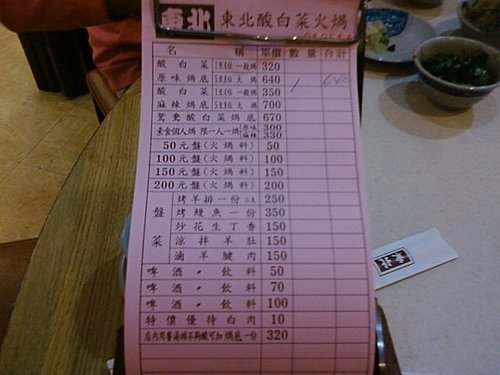 東北 東北酸白菜火鍋
名 稱 單價 數量 合計
酸白菜 一般鍋 320
原味鍋底 大鍋 640 1 640
酸白菜 一般鍋 350
麻辣鍋底 大鍋 700
鴛鴦酸白菜鍋底 670
素食個人鍋 限一人一鍋 原味 300 麻辣 330
50元盤(火鍋料) 50
100元盤(火鍋料) 100
150元盤(火鍋料) 150
200元盤(火鍋料) 200
盤菜
烤羊排一份 250
烤鰻魚一份 350
炒花生丁香 150
涼拌羊肚 150
滷羊腱肉 150
啤酒·飲料 50
啤酒·飲料 70
啤酒·飲料 100
特價優待白肉 10
鍋底一份 320
東北